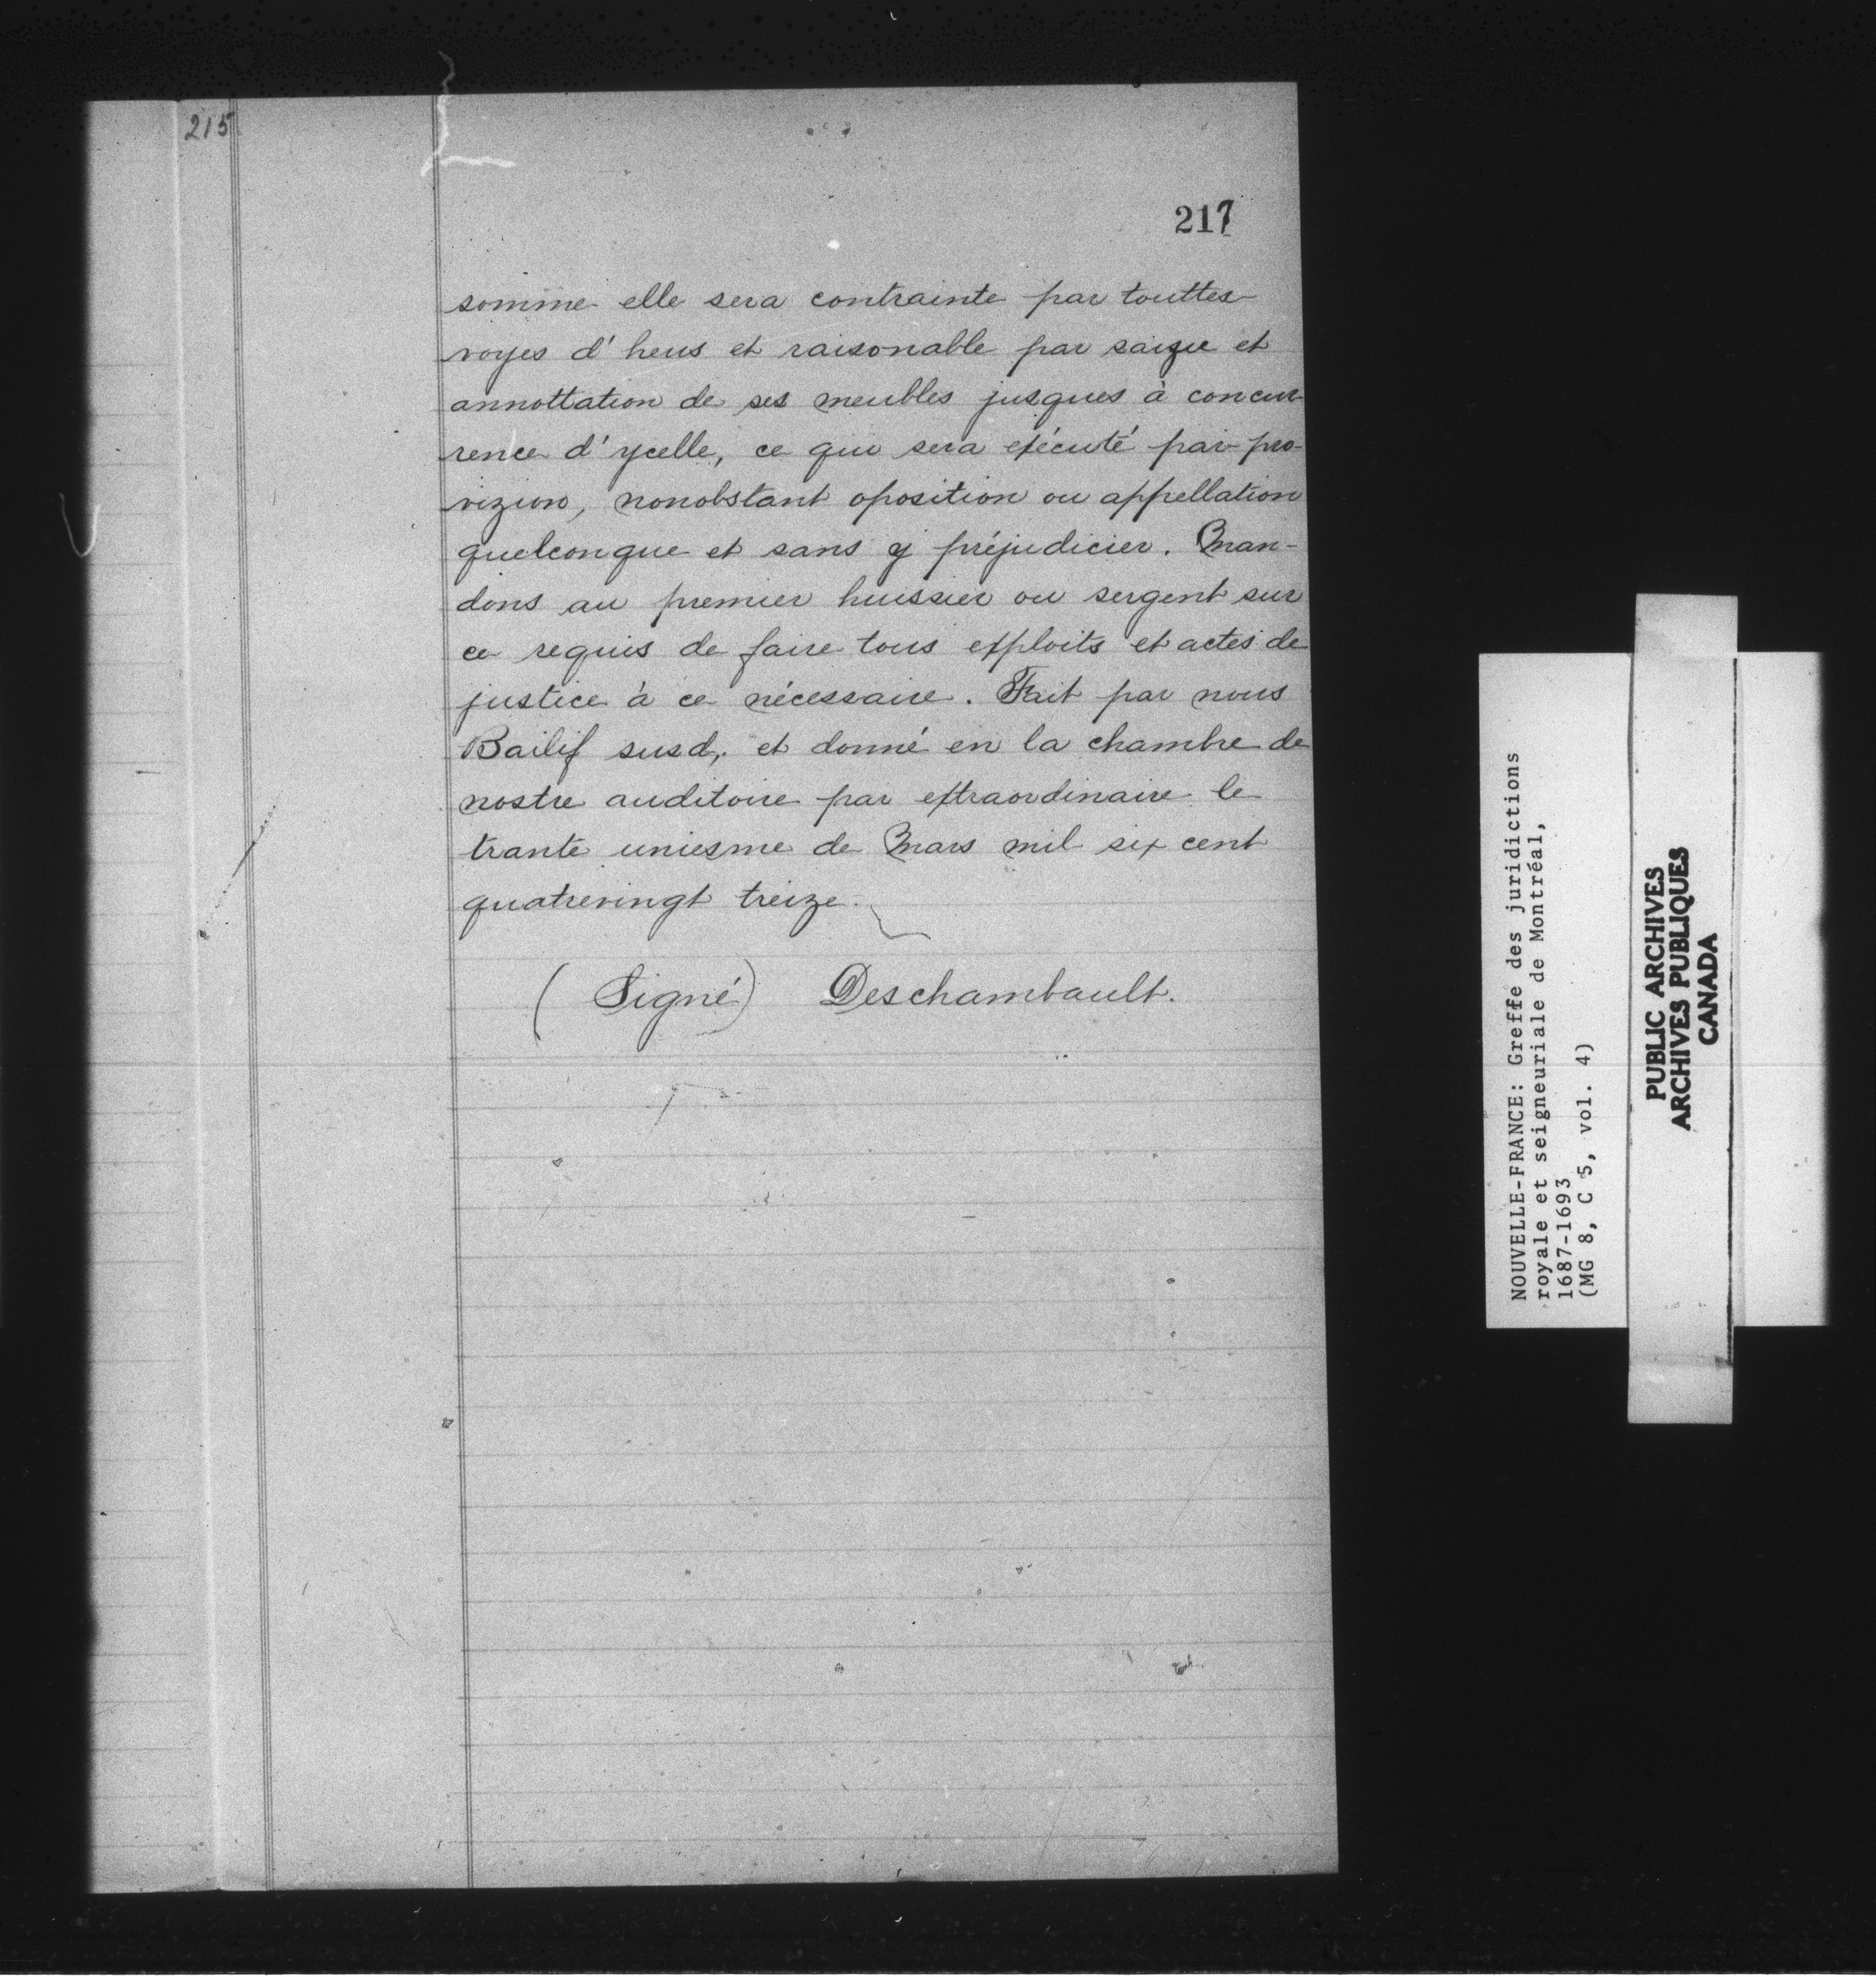 215
217
somme elle sera contrainte par touttes
voyes d'heus et raisonable par saizie et
annottation de ses meubles jusques à concur-
rence d'ycelle, ce qui sera exécuté par pro-
vizion, nonobstant oposition ou appellation
quelconque et sans y préjudicier. Man-
dons au premier huissier ou sergent sur
ce requis de faire tous exploits et actes de
justice à ce nécessaire. Fait par nous
Bailif susd, et donné en la chambre de
nostre auditoire par extraordinaire le
trante uniesme de Mars mil six cent
quatrevingt treize.
(Signé) Deschambault.
NOUVELLE-FRANCE: Greffe des juridictions
royale et seigneuriale de Montréal,
1687-1693
(MG 8, C 5, vol. 4)
PUBLIC ARCHIVES
ARCHIVES PUBLIQUES
CANADA